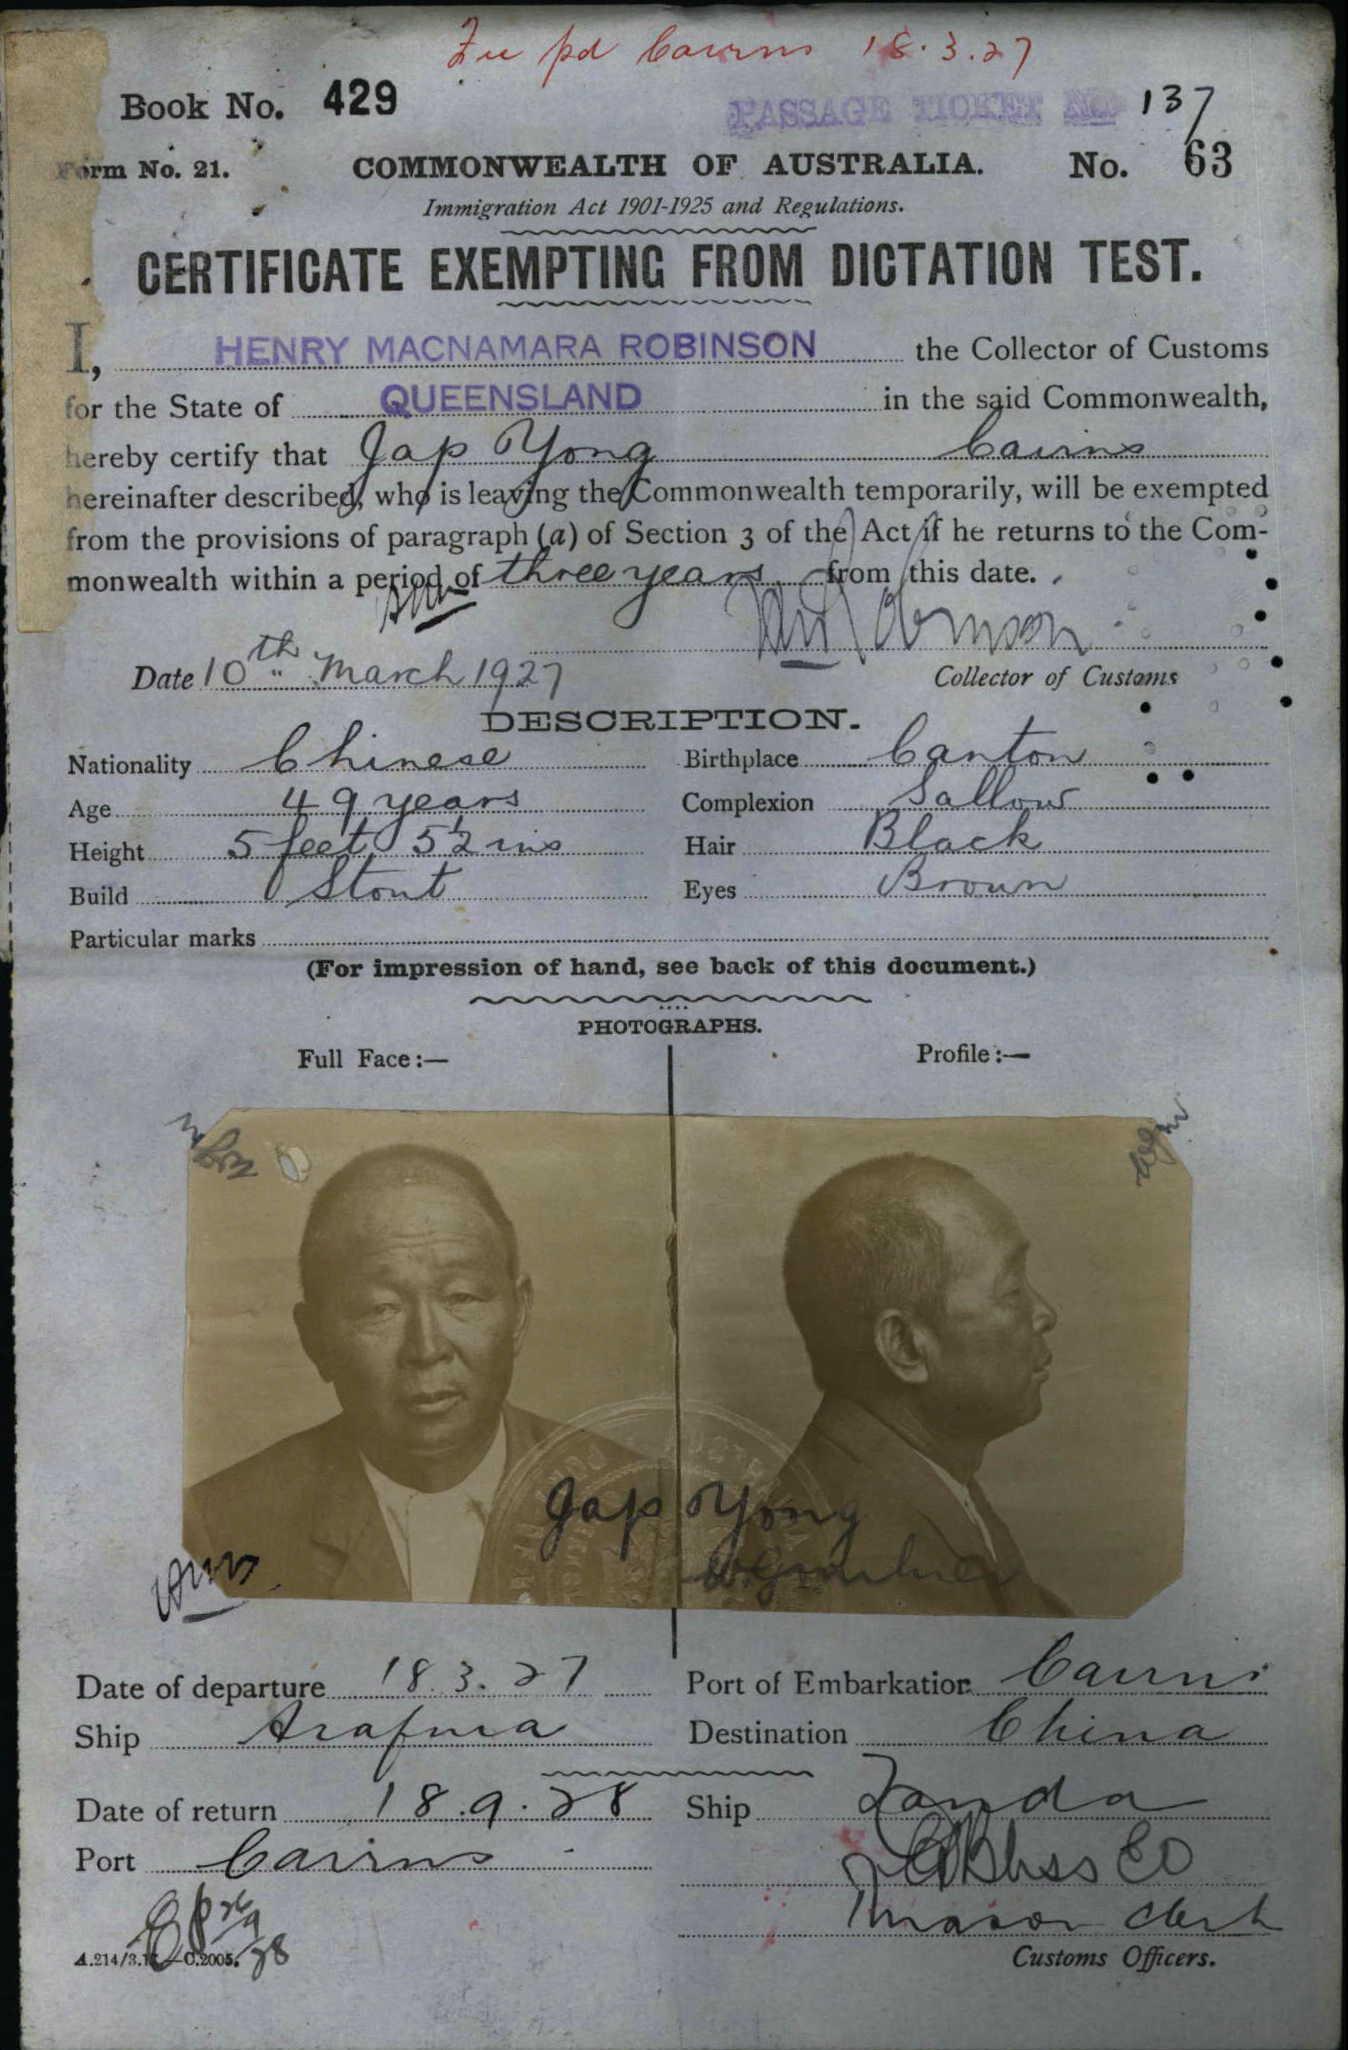 Fee pd Cairns 18.3.27
Book No. 429 PASSAGE TICKET No. 137
Form No. 21. COMMONWEALTH OF AUSTRALIA. No. 63
Immigration Act 1901-1925 and Regulations.
CERTIFICATE EXEMPTING FROM DICTATION TEST.
I, HENRY MACNAMARA ROBINSON the Collector of Customs
for the State of QUEENSLAND in the said Commonwealth,
hereby certify that Jap Yong Cairns
hereinafter described, who is leaving the Commonwealth temporarily, will be exempted
from the provisions of paragraph (a) of Section 3 of the Act if he returns to the Com-
monwealth within a period of three years from this date.
Robinson
Date 10th March 1927 Collector of Customs
DESCRIPTION.
Nationality Chinese Birthplace Canton
Age 49 years Complexion Sallow
Height 5 feet 5½ ins Hair Black
Build Stout Eyes Brown
Particular marks
(For impression of hand, see back of this document.)
PHOTOGRAPHS.
Full Face:— Profile:—
Jap Yong
Date of departure 18.3.27 Port of Embarkation Cairns
Ship Arafura Destination China
Date of return 18.9.28 Ship Tanda
Port Cairns
Mason Clerk
Customs Officers.